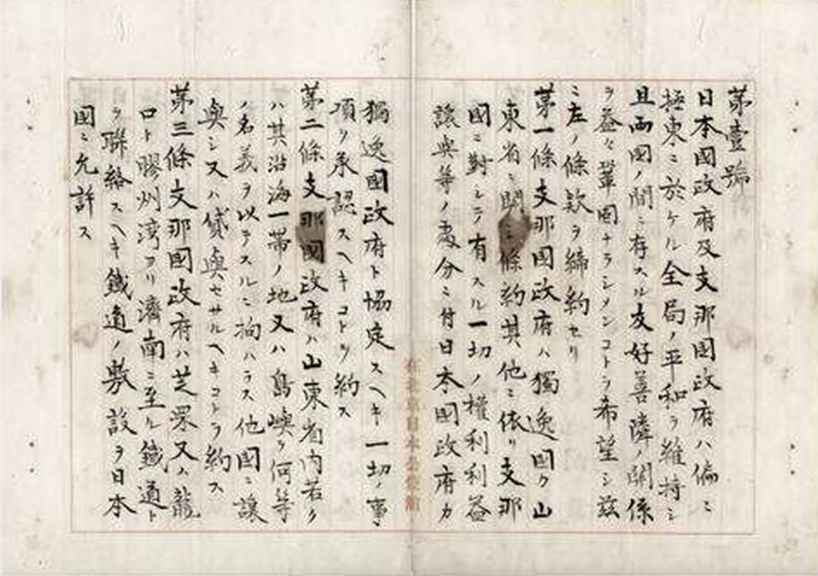 第壹號
日本國政府及支那國政府ハ偏ニ
極東ニ於ケル全局ノ平和ヲ維持シ
且両國ノ間ニ存スル友好善隣ノ關係
ヲ益々鞏固ナラシメンコトヲ希望シ茲
ニ左ノ條款ヲ締約セリ
第一條支那國政府ハ獨逸國カ山
東省ニ関シ條約其他ニ依リ支那
國ニ對シテ有スル一切ノ權利利益
讓與等ノ處分ニ付日本國政府カ
獨逸國政府ト協定スヘキ一切ノ事
項ヲ承認スヘキコトヲ約ス
第二條支那國政府ハ山東省内若ク
ハ其沿海一帯ノ地又ハ島嶼ヲ何等
ノ名義ヲ以テスルニ拘ハラス他國ニ讓
與シ又ハ貸與セサルヘキコトヲ約ス
第三條支那國政府ハ芝罘又ハ龍
口ト膠州湾ヨリ濟南ニ至ル鐵道ト
ヲ聯絡スヘキ鐵道ノ敷設ヲ日本
國ニ允許ス
在北京日本公使館